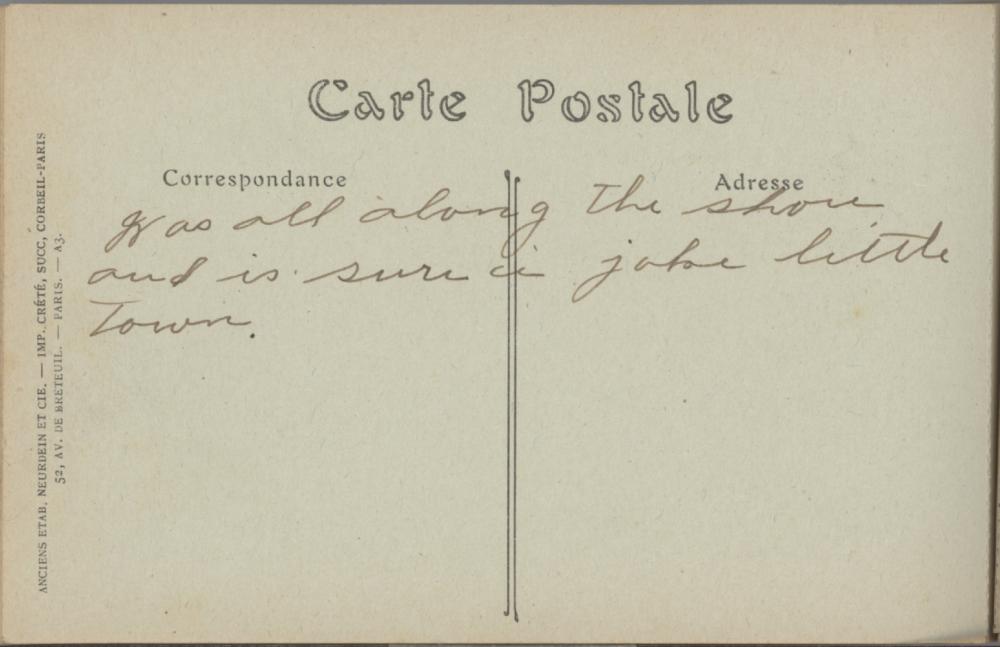 Carte Postale
Correspondance
Adresse
Was all along the shore
and is sure a joke little
Town.
ANCIENS ETAB. NEURDEIN ET CIE. — IMP. CRÉTÉ, SUCC, CORBEIL-PARIS
52, AV. DE BRETEUIL. — PARIS. — A3.